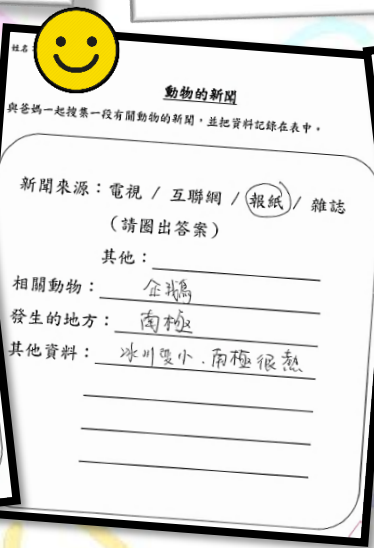 姓名:
動物的新聞
與爸媽一起搜集一段有關動物的新聞,並把資料記錄在表中。
新聞來源:電視 / 互聯網 / 報紙 / 雜誌
(請圈出答案)
其他:
相關動物:企鵝
發生的地方:南極
其他資料:冰川變小.南極很熱